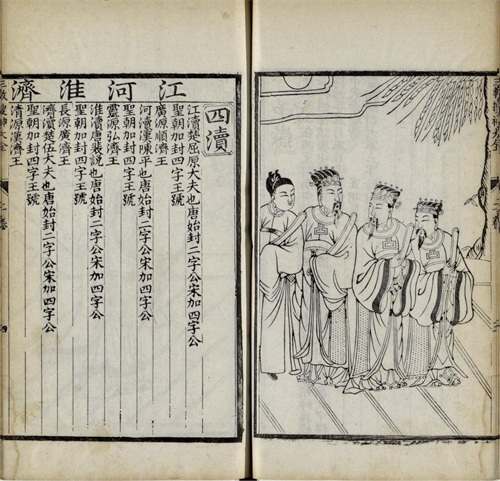 江河淮濟
四瀆
江瀆楚屈原大夫也唐始封二字公宋加四字公
聖朝加封四字王號
廣源順濟王
河瀆漢陳平也唐始封二字公宋加四字公
聖朝加封四字王號
靈源弘濟王
淮瀆唐裴說也唐始封二字公宋加四字公
聖朝加封四字王號
長源廣濟王
濟瀆楚伍大夫也唐始封二字公宋加四字公
聖朝加封四字王號
清源漢濟王